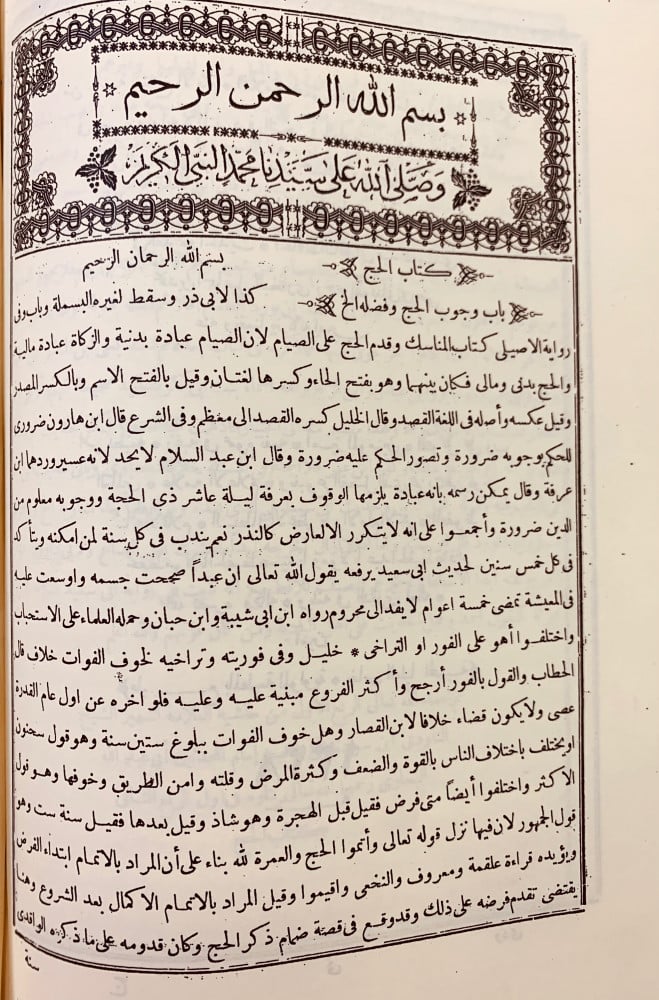 بسم الله الرحمن الرحيم
وصلى الله على سيدنا محمد النبي الكريم
كتاب الحج بسم الله الرحمان الرحيم
باب وجوب الحج وفضله الخ كذا لابى ذر وسقط لغيره البسملة وباب وفى
رواية الاصيلى كتاب المناسك وقدم الحج على الصيام لان الصيام عبادة بدنية والزكاة عبادة مالية
والحج بدنى ومالى فكان بينهما وهو بفتح الحاء وكسرها لغتان وقيل بالفتح الاسم وبالكسر المصدر
وقيل عكسه وأصله فى اللغة القصد وقال الخليل كسره القصد الى معظم وفى الشرع قال ابن هارون ضرورى
للحكم بوجوبه ضرورة وتصور الحكم عليه ضرورة وقال ابن عبد السلام لا يحد لانه عسير وردهما ابن
عرفة وقال يمكن رسمه بانه عبادة يلزمها الوقوف بعرفة ليلة عاشر ذى الحجة ووجوبه معلوم من
الدين ضرورة وأجمعوا على انه لا يتكرر الالعارض كالنذر نعم يندب فى كل سنة لمن امكنه ويتأكد
فى كل خمس سنين لحديث ابى سعيد يرفعه يقول الله تعالى ان عبداً صححت جسمه واوسعت عليه
فى المعيشة تمضى خمسة اعوام لا يفد الى محروم رواه ابن ابى شيبة وابن حبان وحمله العلماء على الاستحباب
واختلفوا أهو على الفور او التراخى * خليل وفى فوريته وتراخيه لخوف الفوات خلاف قال
الحطاب والقول بالفور أرجح وأكثر الفروع مبنية عليه وعليه فلو اخره عن اول عام القدرة
عصى ولا يكون قضاء خلافا لابن القصار وهل خوف الفوات ببلوغ ستين سنة وهو قول سحنون
او يختلف باختلاف الناس بالقوة والضعف وكثرة المرض وقلته وامن الطريق وخوفها وهو قول
الاكثر واختلفوا أيضاً متى فرض فقيل قبل الهجرة وهو شاذ وقيل بعدها فقيل سنة ست وهو
قول الجمهور لان فيها نزل قوله تعالى وأتموا الحج والعمرة لله بناء على أن المراد بالاتمام ابتداء الفرض
ويؤيده قراءة علقمة ومعروف والنخعى واقيموا وقيل المراد بالاتمام الاكمال بعد الشروع وهذا
يقتضى تقدم فرضه على ذلك وقد وقع فى قصة ضمام ذكر الحج وكان قدومه على ما ذكره الواقدى
سنة